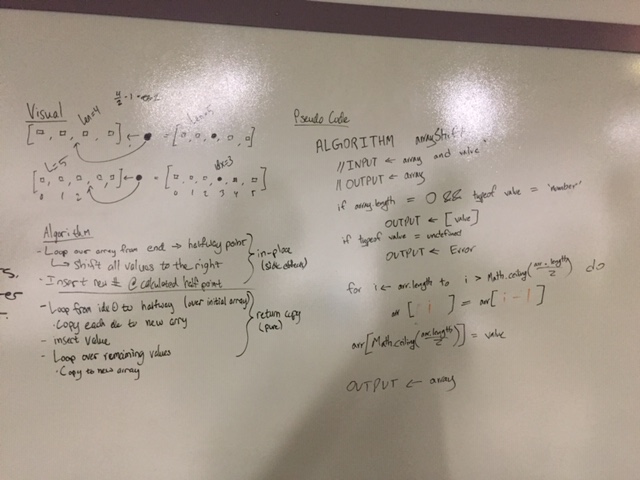 Visual
len=4
[□, □, □, □] ← ● = [□, □, ●, □, □]
len=5
L=5
[□, □, □, □, □] ← ● = [□, □, □, ●, □, □]
0 1 2
idx=3
0 1 2 3 4 5
Algorithm
- Loop over array from end → halfway point
↳ Shift all values to the right
- Insert new # @ calculated half point
in-place
(side effects)
- Loop from idx 0 to halfway (over initial array)
• Copy each to new arry
- insert value
- Loop over remaining values
• Copy to new array
return copy
(pure)
Pseudo Code
ALGORITHM arrayShift
// INPUT ← array and value
// OUTPUT ← array
if array.length = 0 && typeof value = "number"
OUTPUT ← [value]
if typeof value = undefined
OUTPUT ← Error
for i ← arr.length to i > Math.ceiling(arr.length/2) do
arr [ i ] = arr[i - 1]
arr[Math.ceiling(arr.length/2)] = value
OUTPUT ← array